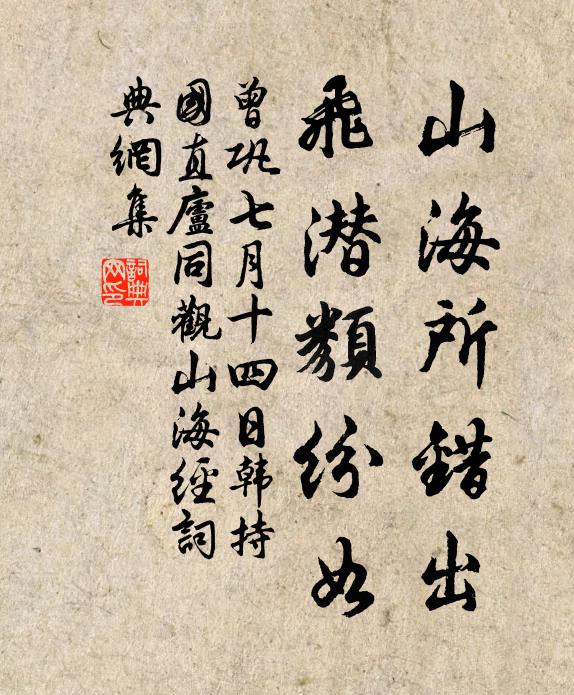 山海所錯出
飛潜類紛如
曾巩七月十四日韩持
國直廬同觀山海經詞
典網集
詞典
网印